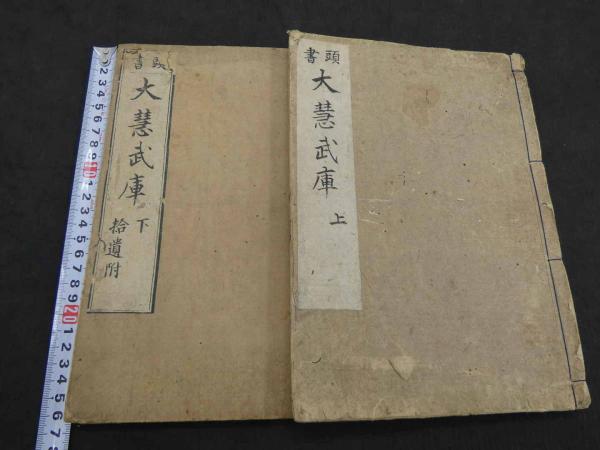 頭書
大慧武庫
上
頭書
大慧武庫
下
拾遺附
2 3 4 5 6 7 8 9 10 1 2 3 4 5 6 7 8 9 20 1 2 3 4 5 6 7